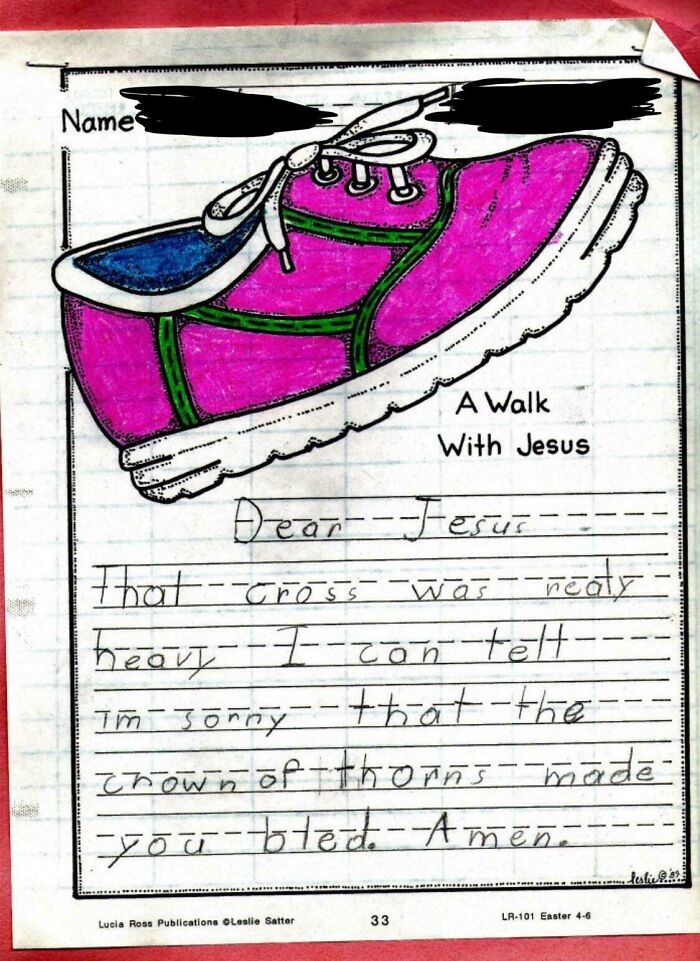 Name
A Walk
With Jesus
Dear Jesus
That cross was realy
heavy I can tell
im sorry that the
crown of thorns made
you bled. Amen.
leslie © '89
Lucia Ross Publications ©Leslie Satter
33
LR-101 Easter 4-6